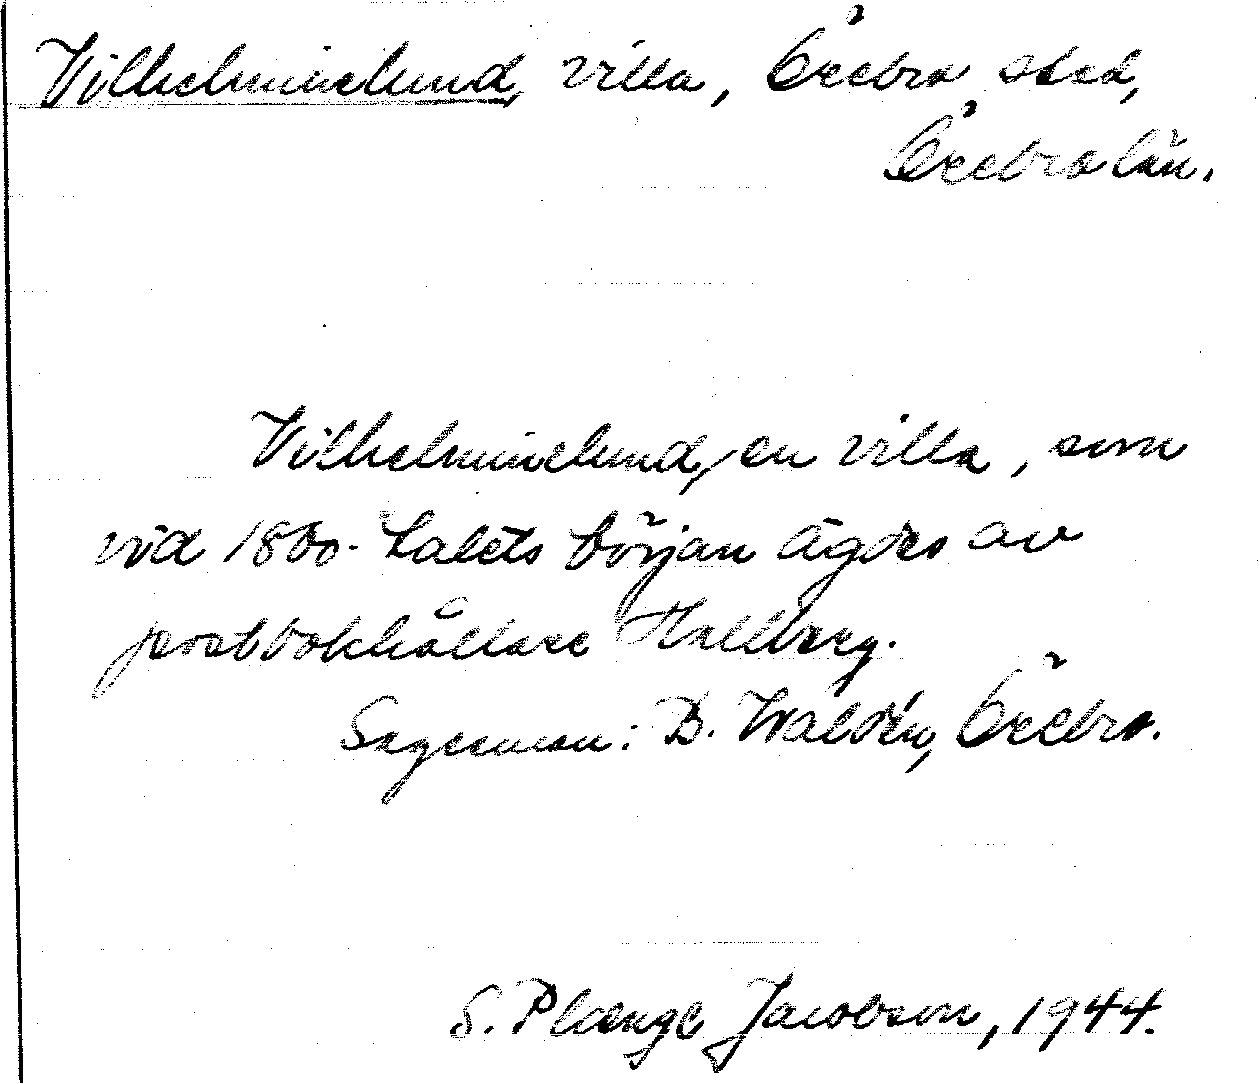 Vilhelminelund, villa, Örebro stad,
Örebro län.
Vilhelminelund, en villa, som
vid 1800-talets början ägdes av
postbokhållare Hallberg.
Sagesman: B. Waldén, Örebro.
S. Plænge Jacobson, 1944.